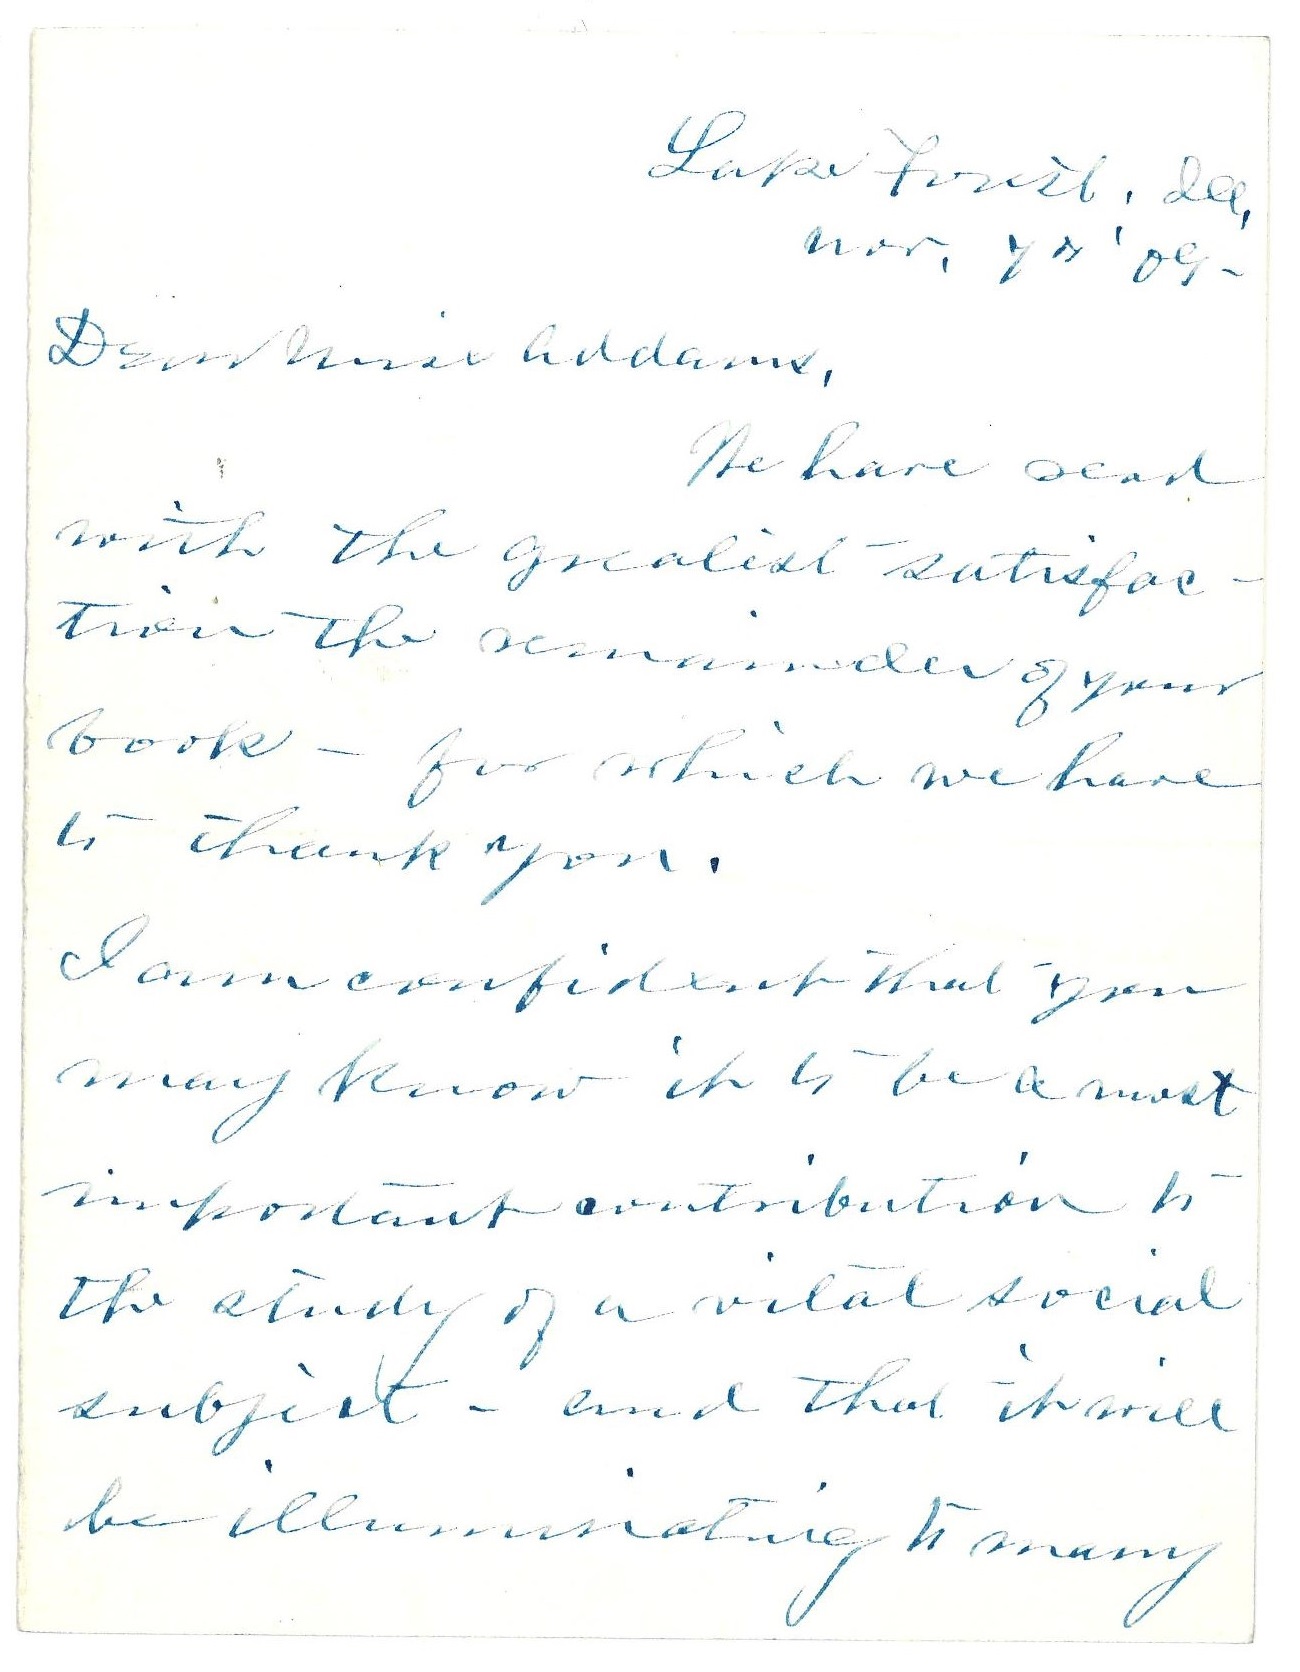 Lake Forest, Ill,
Nov, 7th '09-
Dear Miss Addams,
We have read
with the greatest satisfac-
tion the remainder of your
book - for which we have
to thank you.
I am confident that you
may know it to be a most
important contribution to
the study of a vital social
subject - and that it will
be illuminating to many